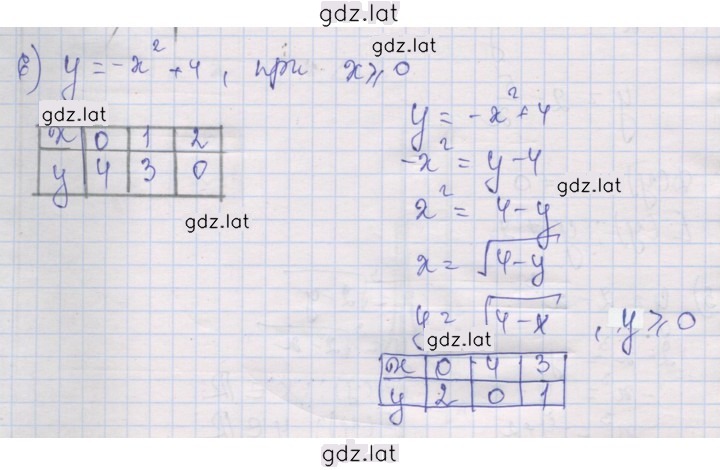 gdz.lat
е) y = -x² + 4, при x ⩾ 0
gdz.lat
gdz.lat
x 0 1 2
y 4 3 0
gdz.lat
y = -x² + 4
-x² = y - 4
gdz.lat
x² = 4 - y
x = √4-y
y = √4-x, y ⩾ 0
gdz.lat
x 0 4 3
y 2 0 1
gdz.lat